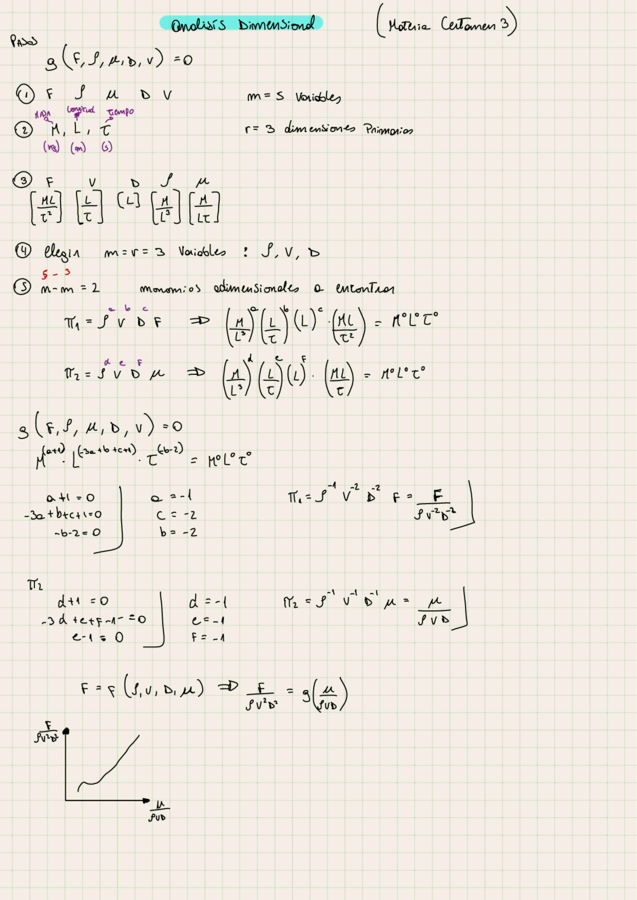 Analisis Dimensional (Materia Certamen 3)
PASOS
g(F, ρ, μ, D, V) = 0
① F ρ μ D V m = 5 Variables
MASA Longitud Tiempo
② M, L, τ r = 3 dimensiones Primarias
(kg) (m) (s)
③ F V D ρ μ
[ML/τ²] [L/τ] [L] [M/L³] [M/Lτ]
④ elegir m = r = 3 Variables : ρ, V, D
5 - 3
⑤ n-m = 2 monomios adimensionales a encontrar
π₁ = ρᵃ Vᵇ Dᶜ F ⇒ (M/L³)ᵃ (L/τ)ᵇ (L)ᶜ · (ML/τ²) = M⁰L⁰τ⁰
π₂ = ρᵈ Vᵉ Dᶠ μ ⇒ (M/L³)ᵈ (L/τ)ᵉ (L)ᶠ · (ML/τ) = M⁰L⁰τ⁰
g(F, ρ, μ, D, V) = 0
M^(a+1) · L^(-3a+b+c+1) · τ^(-b-2) = M⁰L⁰τ⁰
a+1 = 0 a = -1 π₁ = ρ⁻¹ V⁻² D⁻² F = F/ρV⁻²D⁻²
-3a+b+c+1=0 c = -2
-b-2 = 0 b = -2
π₂
d+1 = 0 d = -1 π₂ = ρ⁻¹ V⁻¹ D⁻¹ μ = μ/ρVD
-3d+e+f-1-=0 e = -1
e-1 = 0 F = -1
F = f(ρ, V, D, μ) ⇒ F/ρV²D² = g(μ/ρVD)
F/ρV²D²
μ/ρVD